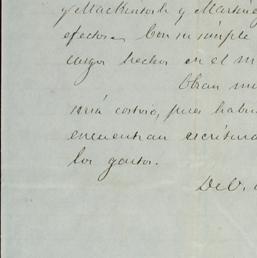 y MacKintosh y Martine
efectos. Con su simple
cargos hechos en el m
Obran
sería costoso, pues habri
encuentran escritura
los gastos.
De V.